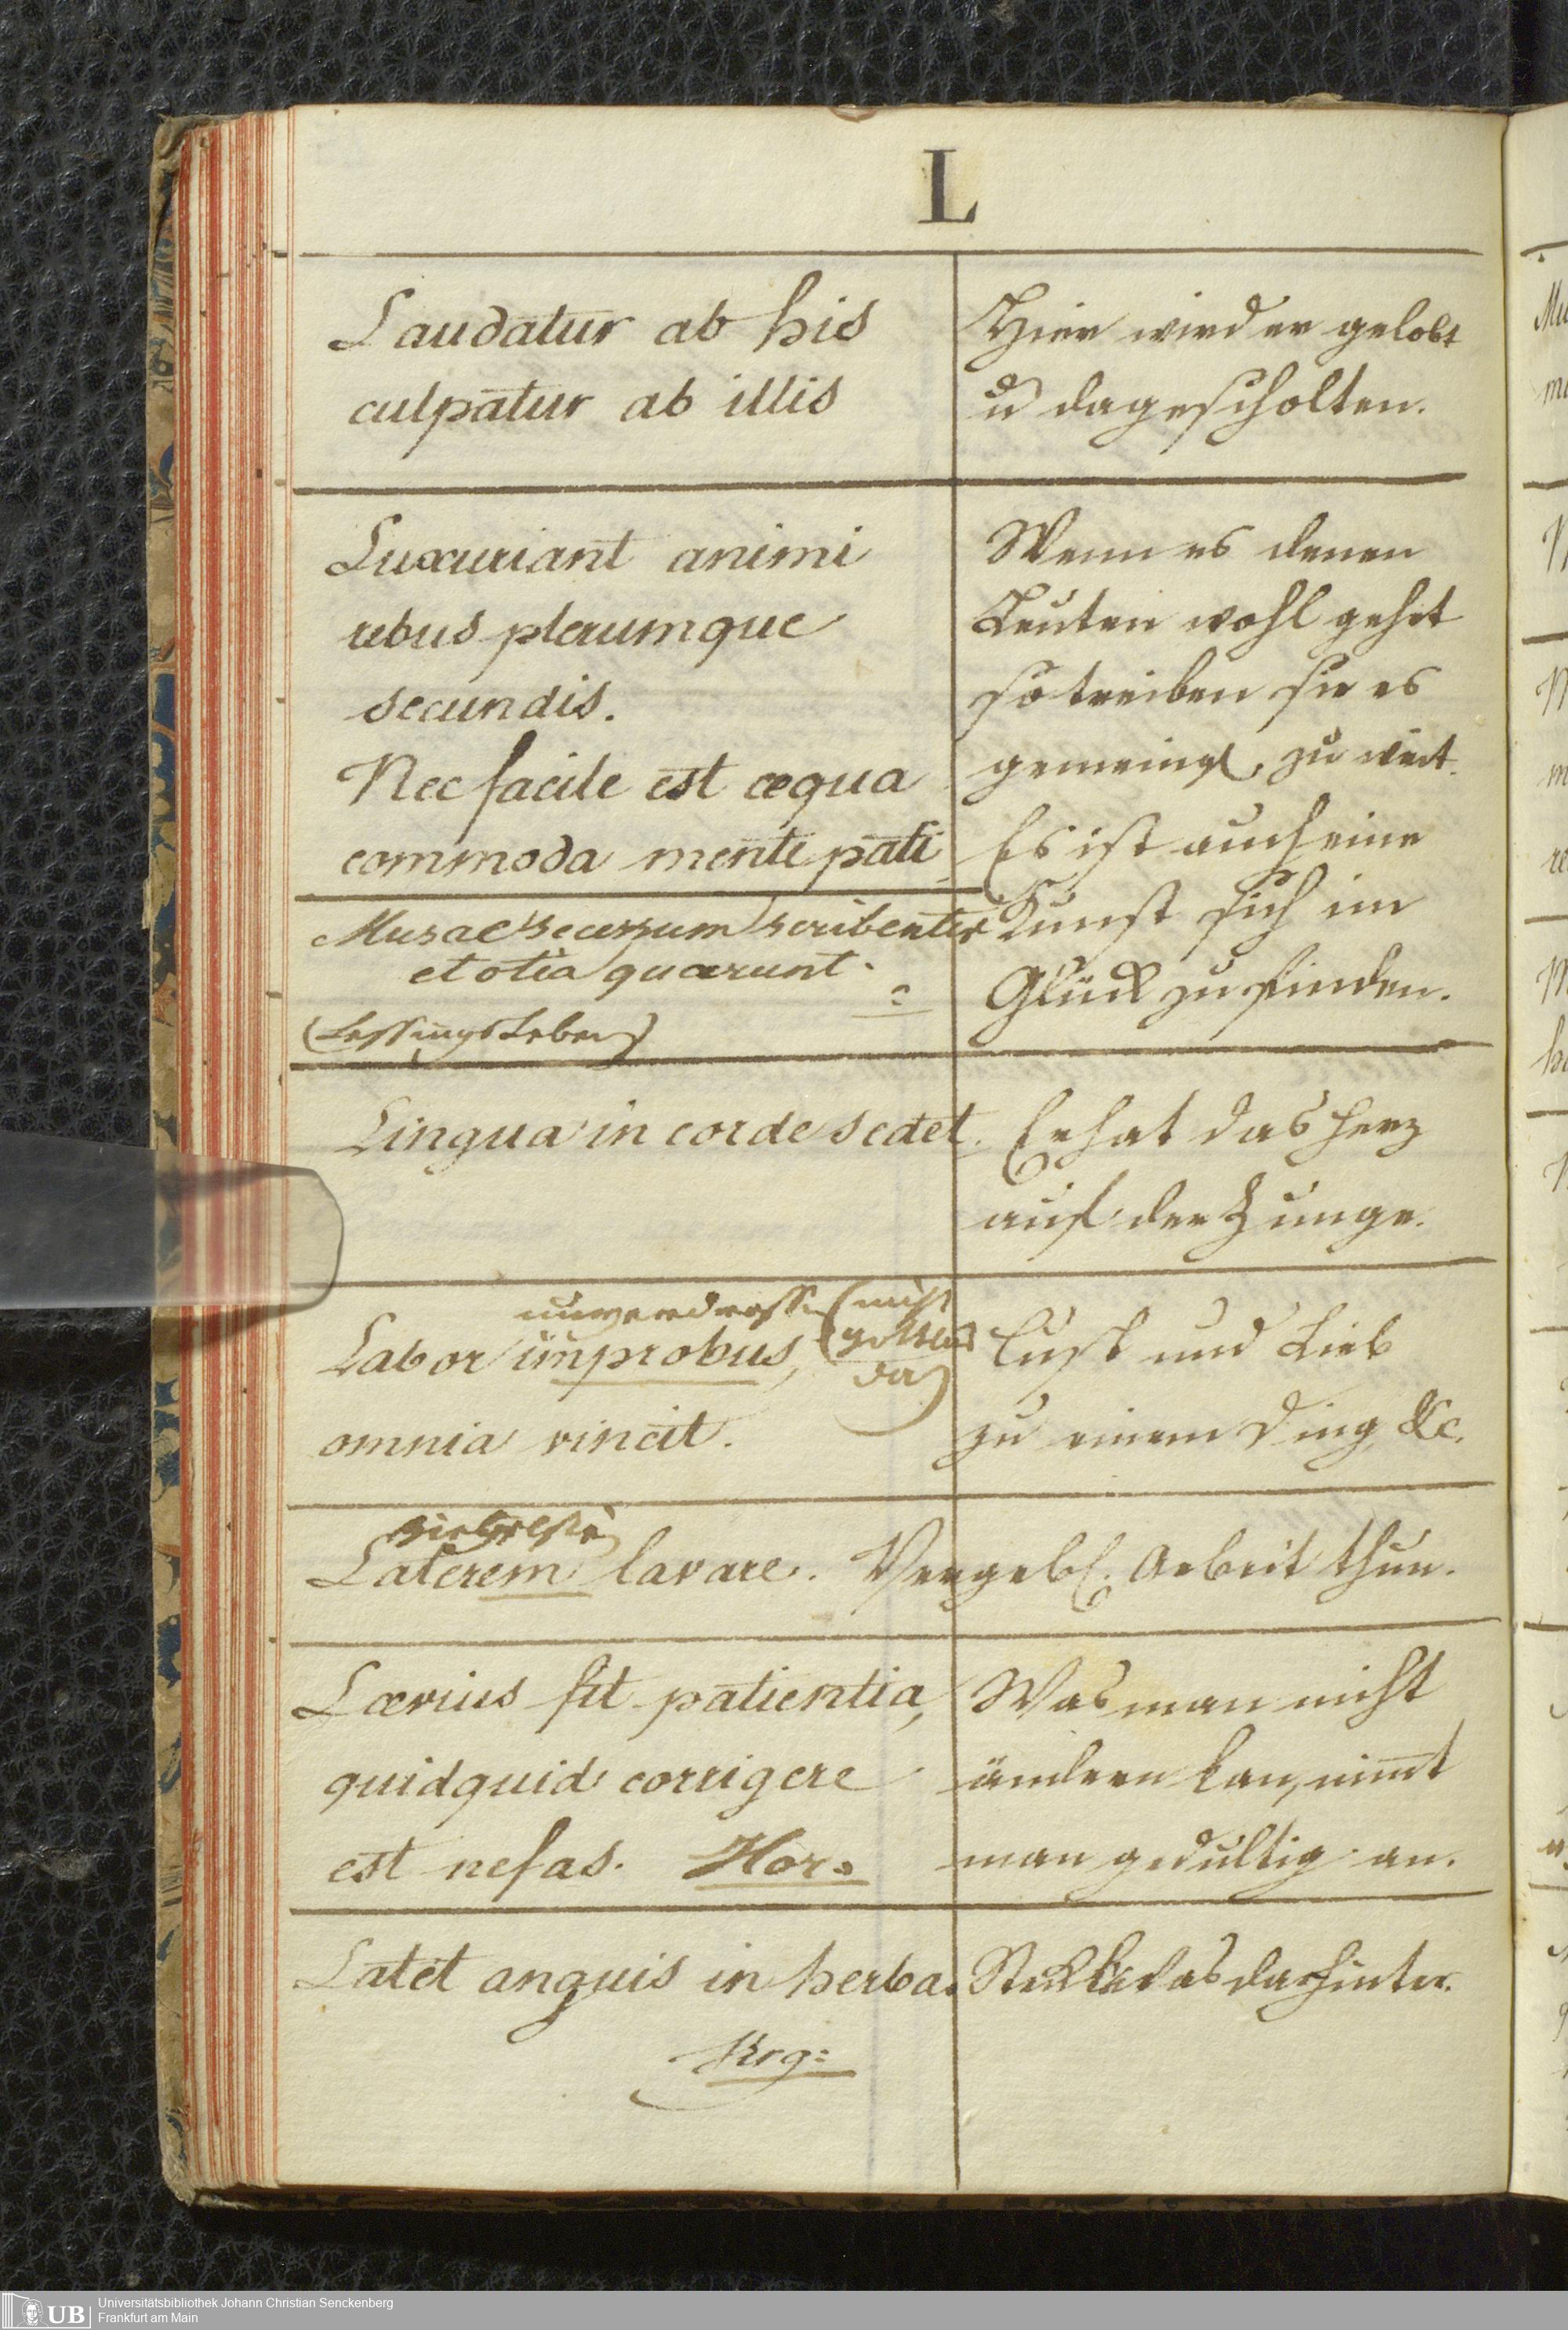 L
Laudatur ab his
culpatur ab illis
Hier wird er gelobt
u dagescholten.
Luxuriant animi
rebus plerumque
secundis.
Nec facile est æqua
commoda mente pati
Wenn es denen
Leuten wohl gehet
so treiben sie es
gemeinigl. zu weit.
Es ist auch eine
Kunst sich im
Glück zu finden.
Musae secessum scribentis
et otia quærunt.
(Lessings Leben)
Lingua in corde sedet.
Er hat das Herz
auf der Zunge.
unverdrossen (nicht
gottlos
da)
Labor improbus,
omnia vincit.
Lust und Lieb
zu einem Ding &c.
Laterem lavare. Vergebl. Arbeit thun.
Lævius fit patientia,
quidquid corrigere
est nefas. Hor.
Was man nicht
ändern kan, nim̄t
man gedultig an.
Latet anguis in herba.
Steckt was dahinter.
Universitätsbibliothek Johann Christian Senckenberg
Frankfurt am Main
UB